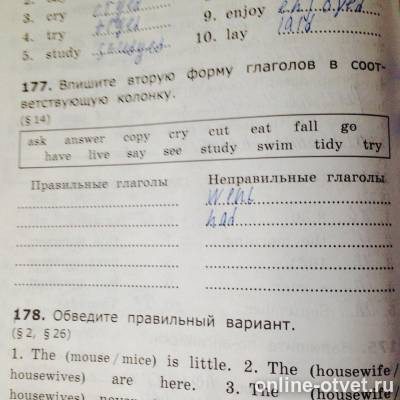 3. cry
4. try
5. study
9. enjoy
10. lay
177. Впишите вторую форму глаголов в соот-
ветствующую колонку.
(§ 14)
ask answer copy cry cut eat fall go
have live say see study swim tidy try
Правильные глаголы
Неправильные глаголы
went
had
178. Обведите правильный вариант.
(§ 2, § 26)
1. The (mouse / mice) is little. 2. The (housewife /
housewives) are here. 3. The (house
online-otvet.ru